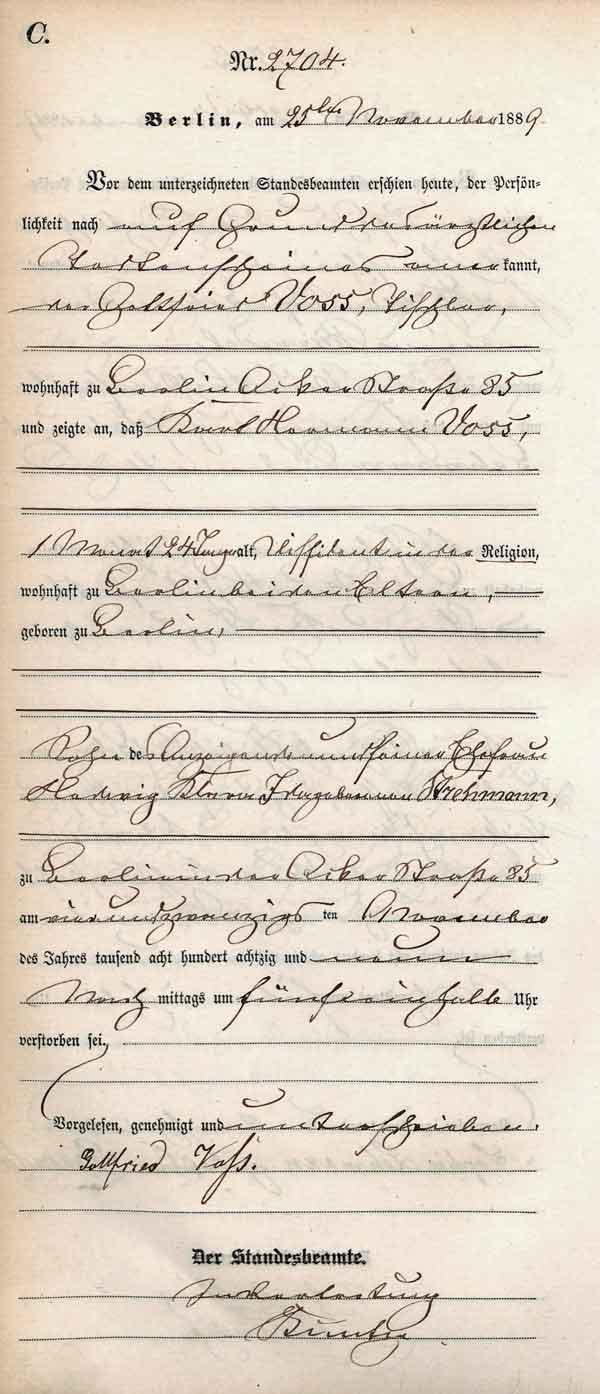 C.
Nr. 2704.
Berlin, am 25ten November 1889
Vor dem unterzeichneten Standesbeamten erschien heute, der Persön-
lichkeit nach auf Grund des ärztlichen
Todtenscheines aner kannt,
der Gottfried Voss, Tischler,
wohnhaft zu Berlin Acker Straße 85
und zeigte an, daß Karl Hermann Voss,
1 Monat 24 Tage alt, Dissidentischer Religion,
wohnhaft zu Berlin bei den Eltern,
geboren zu Berlin,
Sohn des Anzeigenden und seiner Ehefrau
Hedwig Klara Ida geborenen Strehmann,
zu Berlin in der Acker Straße 85
am vier und zwanzigs ten November
des Jahres tausend acht hundert achtzig und neun
Nach mittags um fünf ein halb Uhr
verstorben sei.
Vorgelesen, genehmigt und unterschrieben.
Gottfried Voss.
Der Standesbeamte.
In Vertretung